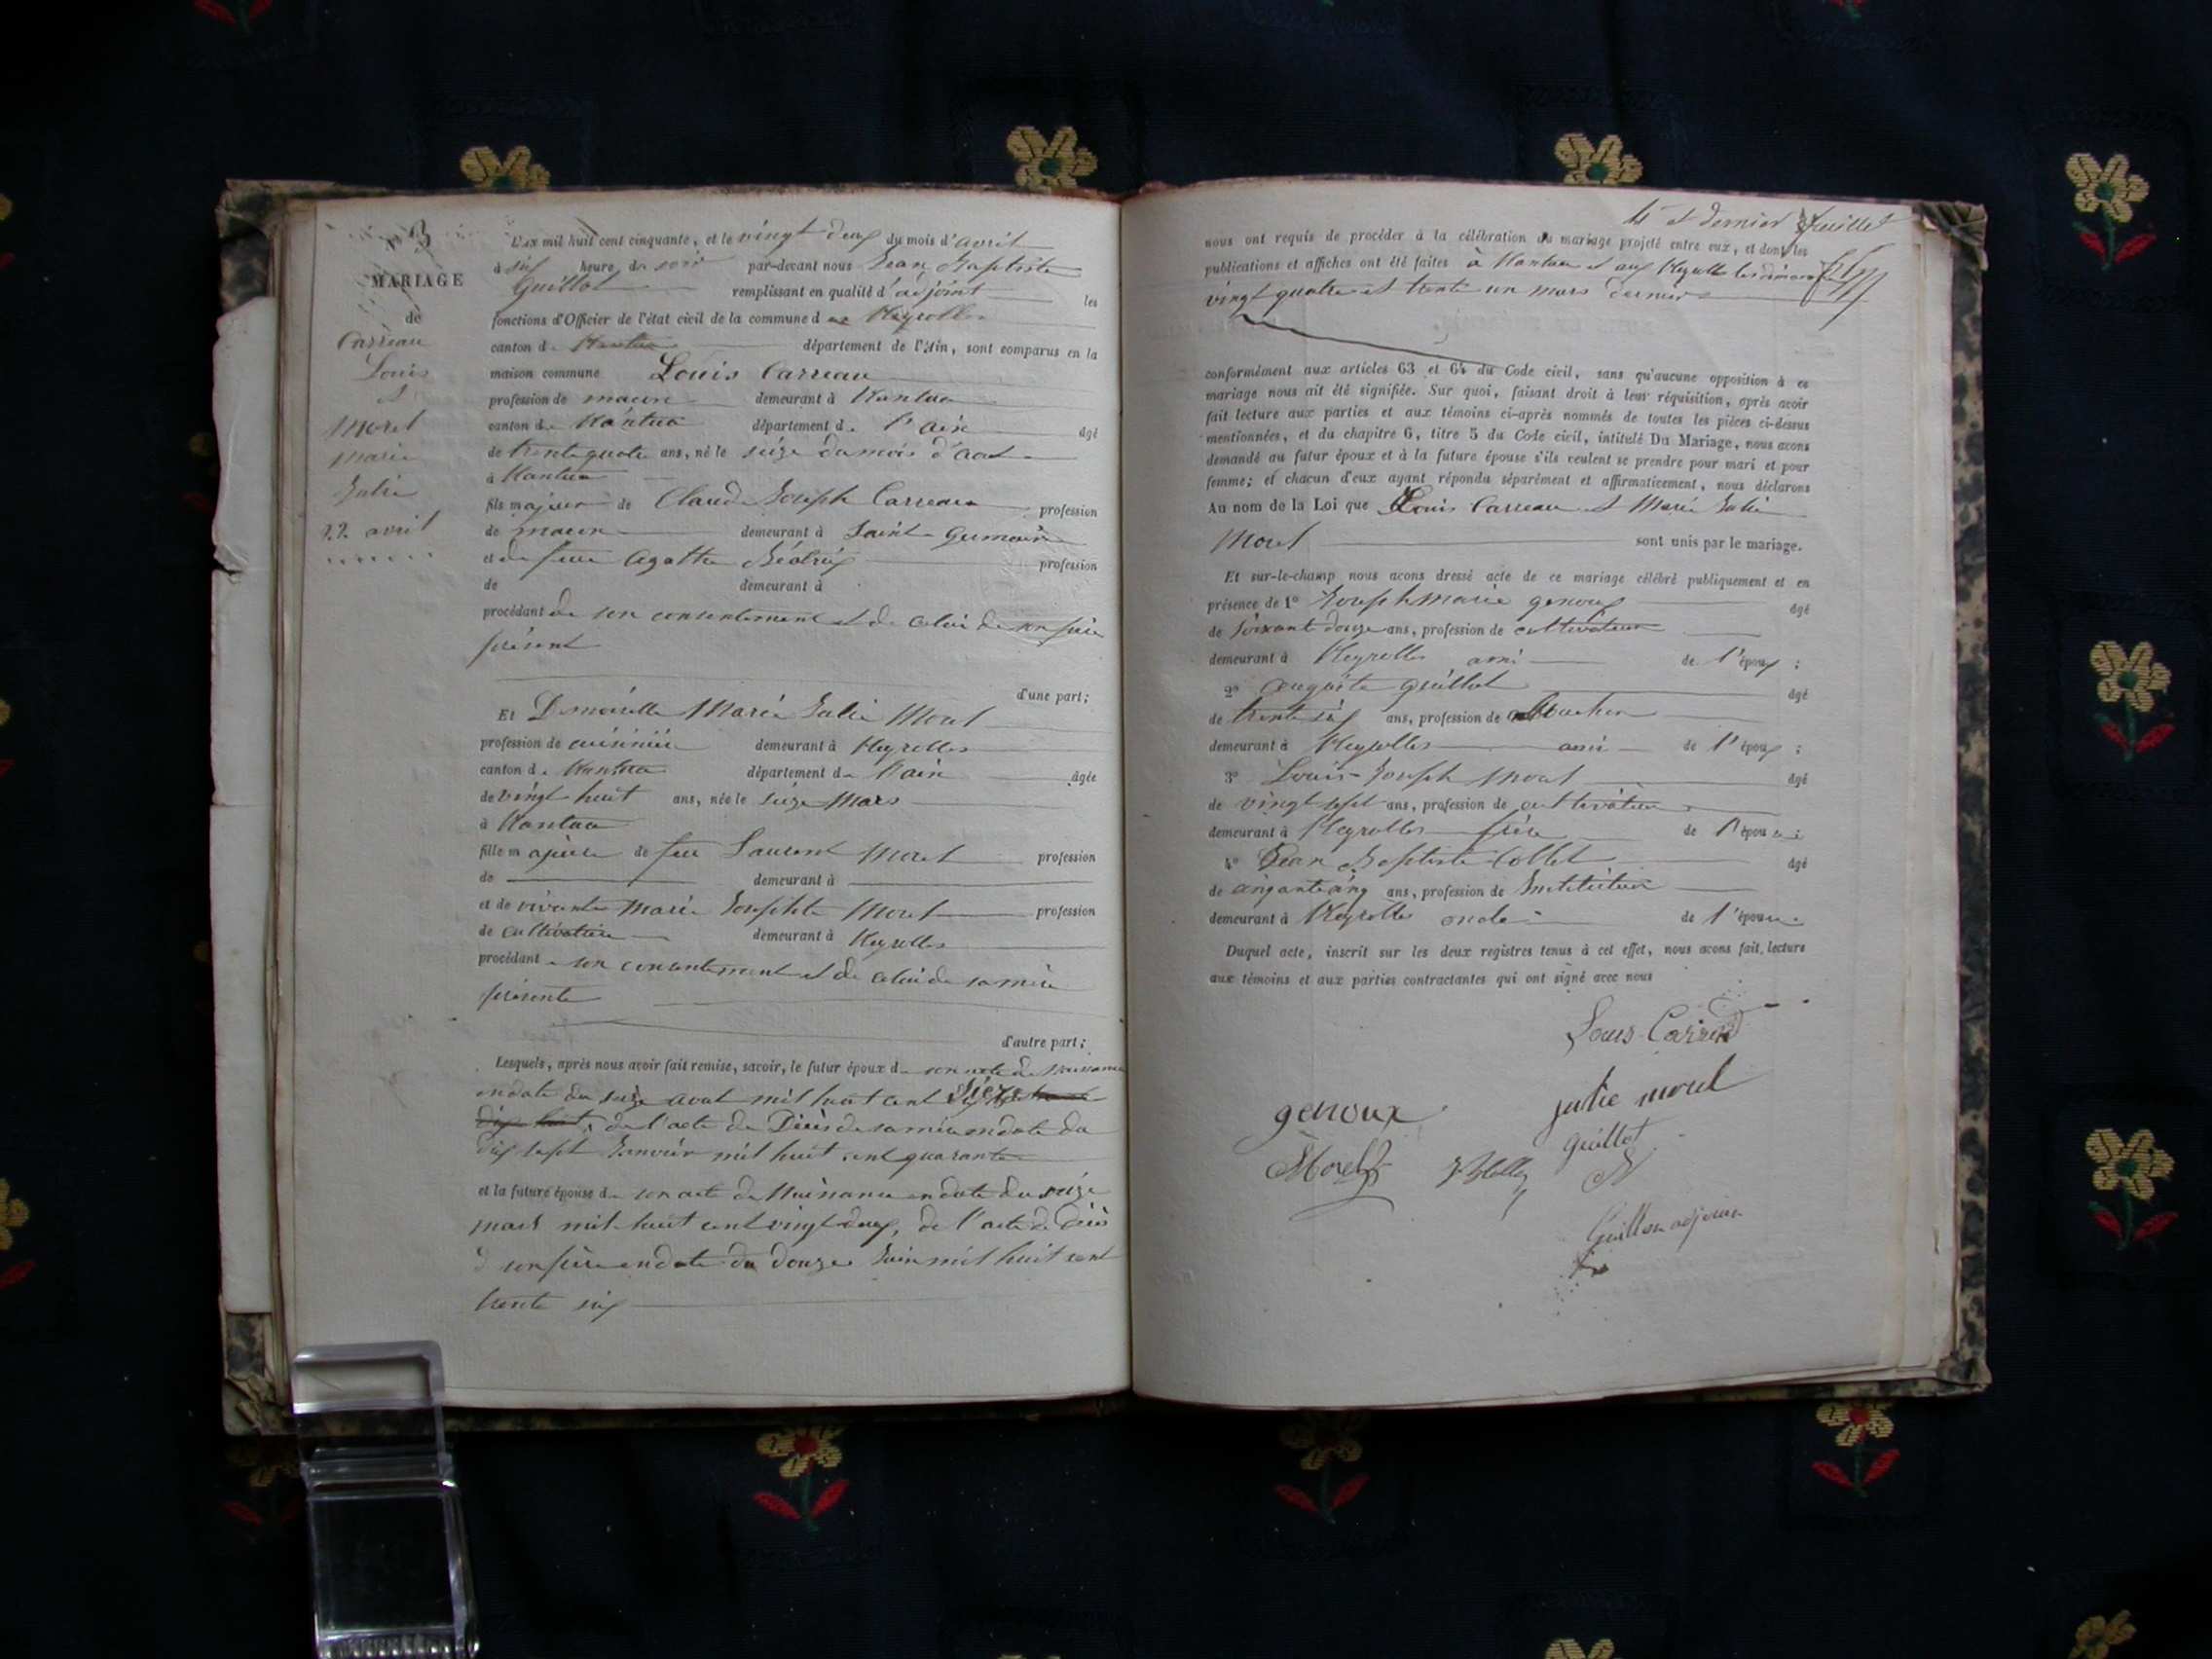 N° 3
MARIAGE
de
Carreau
Louis
et
Morel
Marie
Julie
22 avril
L'AN mil huit cent cinquante, et le vingt deux du mois d'avril
à six heure du soir par-devant nous Jean Baptiste
Guillot remplissant en qualité d'adjoint les
fonctions d'Officier de l'état civil de la commune de Neyrolles
canton de Nantua département de l'Ain, sont comparus en la
maison commune Louis Carreau
profession de maçon demeurant à Nantua
canton de Nantua département de l'ain âgé
de trente quatre ans, né le seize du mois d'aout
à Nantua
fils majeur de Claude Joseph Carreau profession
de maçon demeurant à Saint Germain
et de feue Agathe Béatrix profession
de demeurant à
procédant de son consentement et de celui de son père
présent
d'une part;
Et Demoiselle Marie Julie Morel
profession de cuisinière demeurant à Neyrolles
canton de Nantua département de l'ain âgée
de vingt huit ans, née le seize Mars
à Nantua
fille majeure de feu Laurent Morel profession
de demeurant à
et de vivante Marie Josephte Morel profession
de cultivatrice demeurant à Neyrolles
procédant de son consentement et de celui de sa mère
présente
d'autre part;
Lesquels, après nous avoir fait remise, savoir, le futur époux de son acte de Naissance
en date du seize aout mil huit cent
de l'acte de Décès de sa mère en date du
dix sept Janvier mil huit cent quarante
et la future épouse de son acte de Naissance en date du seize
mars mil huit cent vingt deux, de l'acte de décès
d son père en date du douze Juin mil huit cent
trente six
4e et dernier feuillet
nous ont requis de procéder à la célébration du mariage projeté entre eux, et dont les
publications et affiches ont été faites à Nantua et aux Neyrolles les dimanches
vingt quatre et trente un mars dernier
conformément aux articles 63 et 64 du Code civil, sans qu'aucune opposition à ce
mariage nous ait été signifiée. Sur quoi, faisant droit à leur réquisition, après avoir
fait lecture aux parties et aux témoins ci-après nommés de toutes les pièces ci-dessus
mentionnées, et du chapitre 6, titre 5 du Code civil, intitulé Du Mariage, nous avons
demandé au futur époux et à la future épouse s'ils veulent se prendre pour mari et pour
femme; et chacun d'eux ayant répondu séparément et affirmativement, nous déclarons
Au nom de la Loi que Louis Carreau et Marie Julie
Morel sont unis par le mariage.
Et sur-le-champ nous avons dressé acte de ce mariage célébré publiquement et en
présence de 1° Joseph marie genoux âgé
de soixante douze ans, profession de cultivateur
demeurant à Neyrolles ami de l'époux;
2° auguste guillot âgé
de trente six ans, profession de
demeurant à Neyrolles ami de l'époux;
3° Louis-Joseph Morel âgé
de vingt sept ans, profession de cultivateur
demeurant à Neyrolles frère de l'épouse;
4° Jean Baptiste Collet âgé
de cinquante cinq ans, profession de Instituteur
demeurant à Neyrolles oncle de l'épouse.
Duquel acte, inscrit sur les deux registres tenus à cet effet, nous avons fait lecture
aux témoins et aux parties contractantes qui ont signé avec nous
Louis Carreau
julie morel
genoux
guillot
Morel
Guillot adjoint